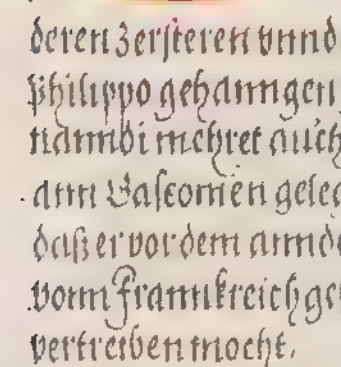 deren Zersteren vnnd
Philippo gehanngen
mehret auch
ann Vasconien geleg
daß er vor dem annd
vonn Frannkreich ge
vertreiben mocht.